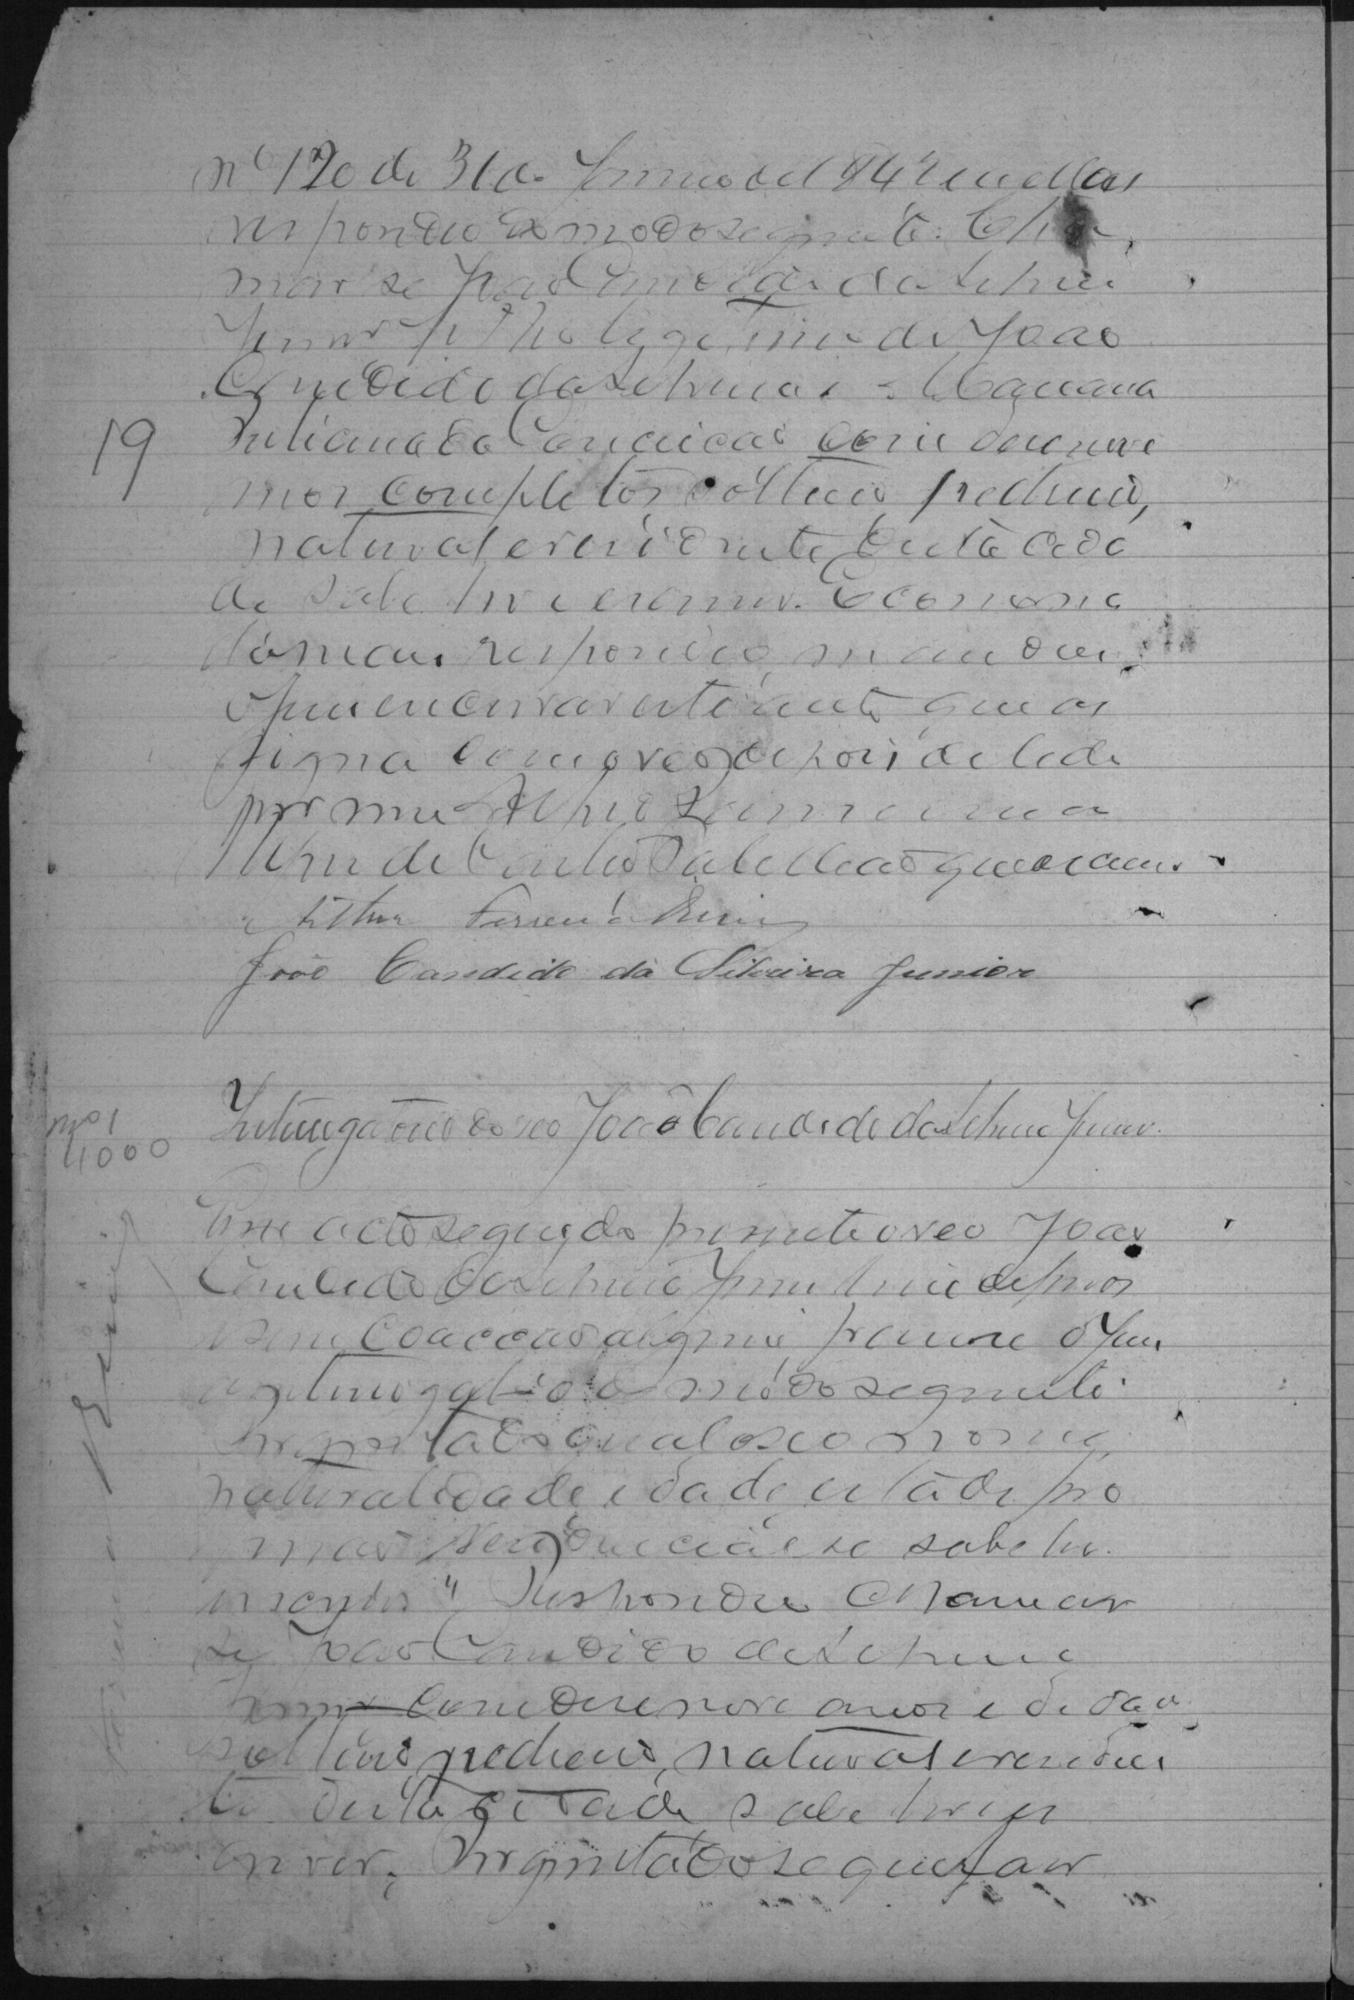 nº 120 de 31 de Janeiro de 1842 e a ellas
respondeo do modo seguinte: Cha
mar se João Candido da Silveira
Junior filho legitimo de João
Candido da Silveira e
19
Juliana da Conceicão com desenove
annos completos solteiro pedreiro,
natural e residente desta cida
de sabe ler e escrever. E como na
da mais respondeo, mandou
o Juis encerrar este auto que as
signa com o reo depois de lido
por mim
Tabellião que o escrevi
João Candido da Silveira Junior
Interrogatorio do reo João Candido da Silveira Junior.
nº 1
4000
Em acto seguido presente o reo João
Candido da Silveira Junior livre de ferros
e sem coaccão alguma passou o Juis
a interrogal-o do modo seguinte:
Perguntado qual o seo nome,
naturalidade, idade, estado, pro
residencia e se sabe ler
e escrever" Respondeu chamar
se João Candido da Silveira
Junior com desenove annos de idade
solteiro pedreiro, natural e residen
te desta cidade sabe ler e es
crever. Perguntado se quer faser